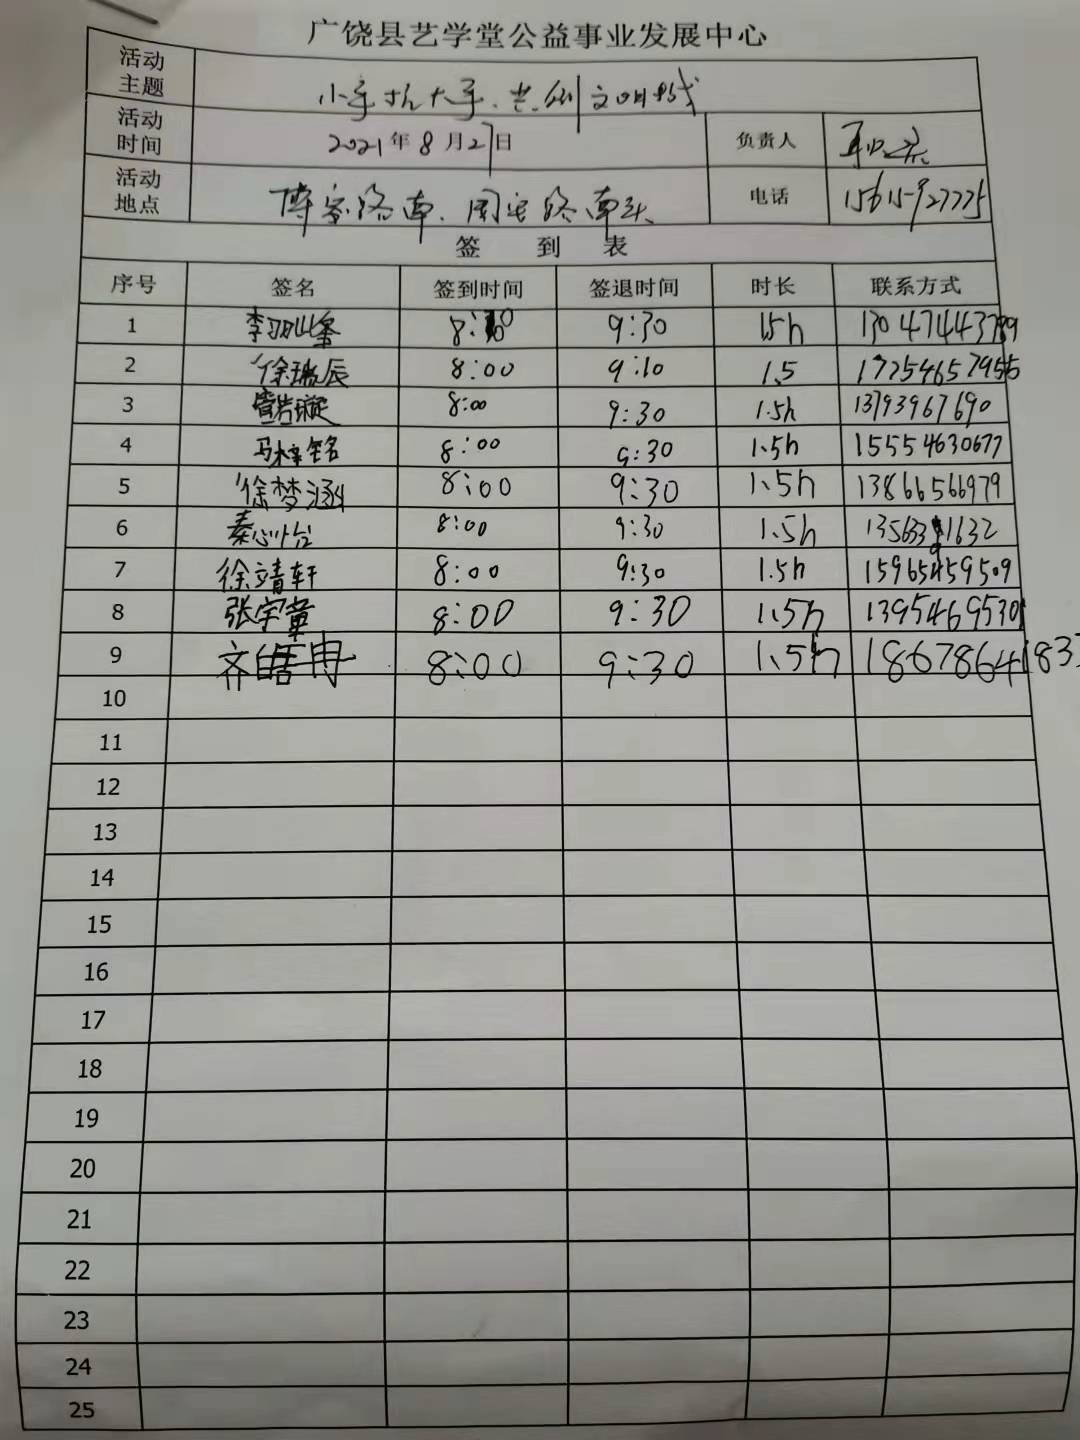 广饶县艺学堂公益事业发展中心
活动主题 小手拉大手、共创文明城
活动时间 2021年8月27日 负责人
活动地点 博客路南、周电路南头 电话 15615927775
签 到 表
序号 签名 签到时间 签退时间 时长 联系方式
1 8:00 9:30 1.5h
2 徐瑞辰 8:00 9:10 1.5
3 8:00 9:30 1.5h 13793967690
4 马梓铭 8:00 9:30 1.5h 15554630677
5 徐梦涵 8:00 9:30 1.5h 13866566979
6 秦心怡 8:00 9:30 1.5h
7 徐靖轩 8:00 9:30 1.5h
8 张宇章 8:00 9:30 1.5h 13954695301
9 齐皓冉 8:00 9:30 1.5h
10
11
12
13
14
15
16
17
18
19
20
21
22
23
24
25